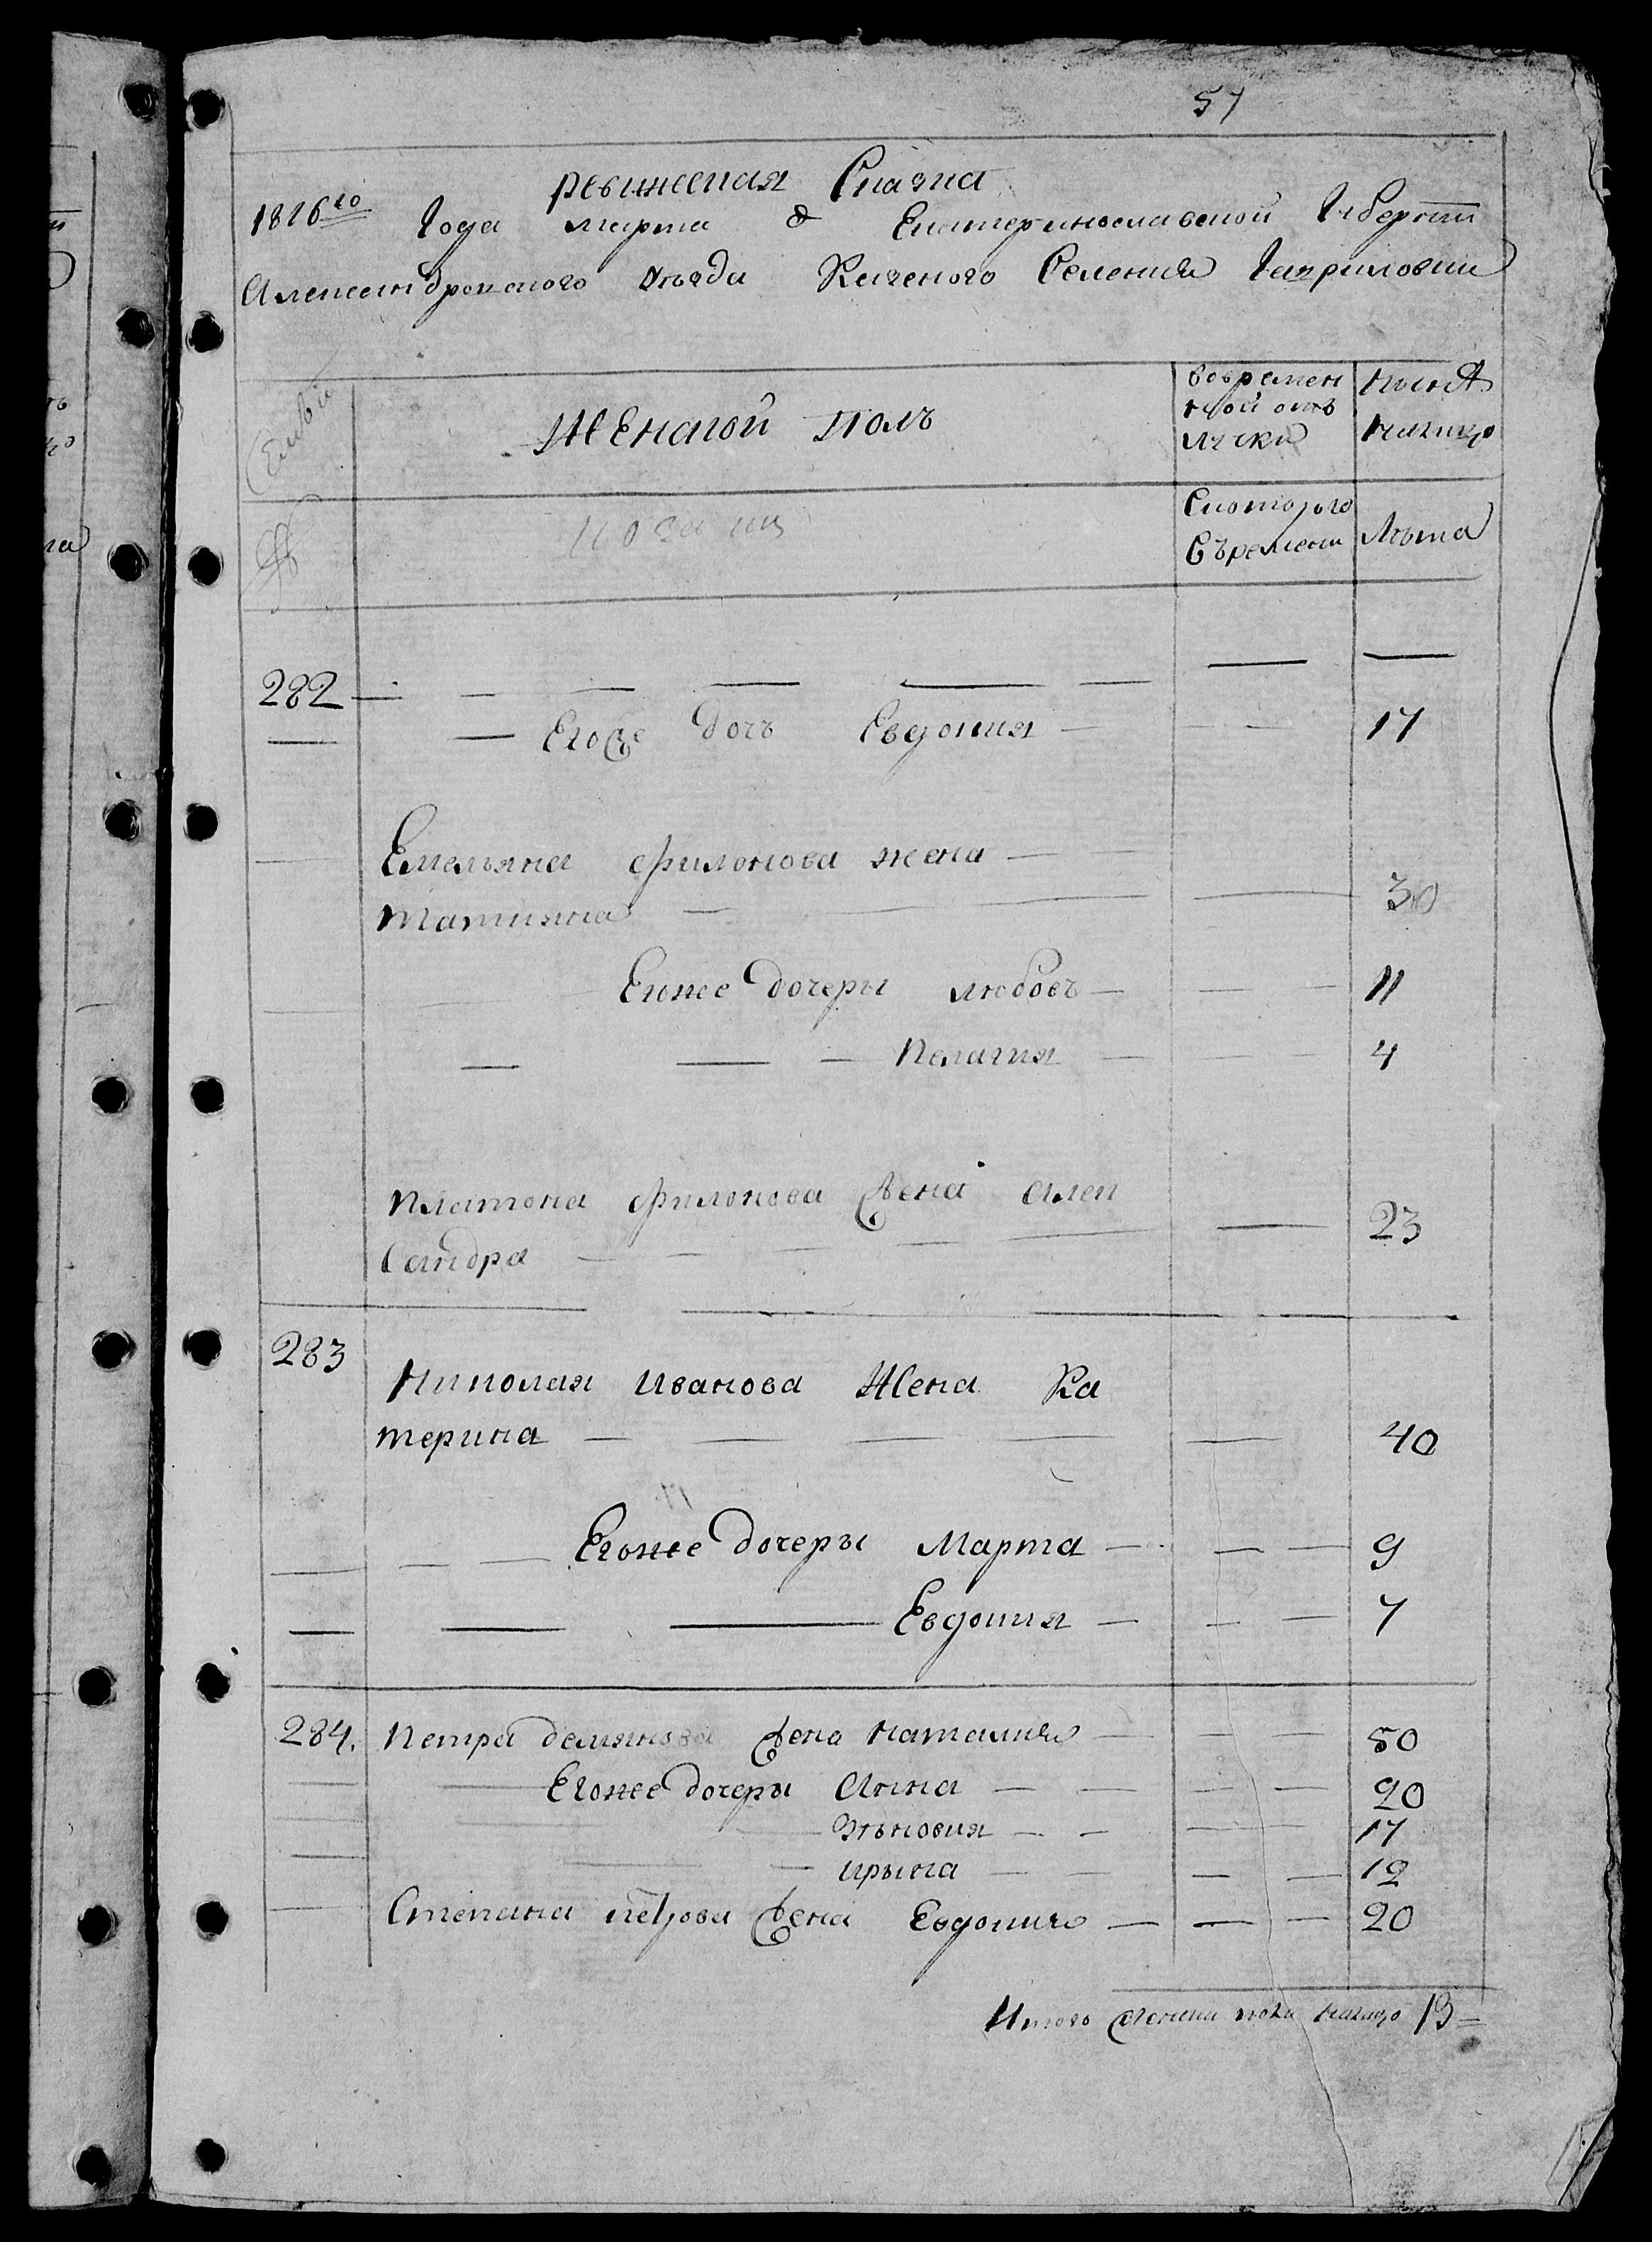 57
ревижская Сказка
1816го Года марта д Екатеринославской Губернии
Александровского уезда Казеного Селения Гавриловки
Семьи
Женской полъ
вовремен
ной отъ
лучки
нынѣ
налицо
№
Скоторого
Времени
Лѣта
282
Егоже дочь Евдокия 17
Емельяна филонова жена
Татияна 30
Егоже дочеры любовъ 11
Пелагия 4
Платона филонова жена Алек
сандра 23
283
Николая Иванова Жена Ка
терина 40
Егоже дочеры Марта 9
Евдокия 7
284. Петра демянова жена наталия 50
Егоже дочеры Анна 20
Зѣновия 17
ирына 12
Степана петрова жена Евдокия 20
Итого женска пола налицо 13